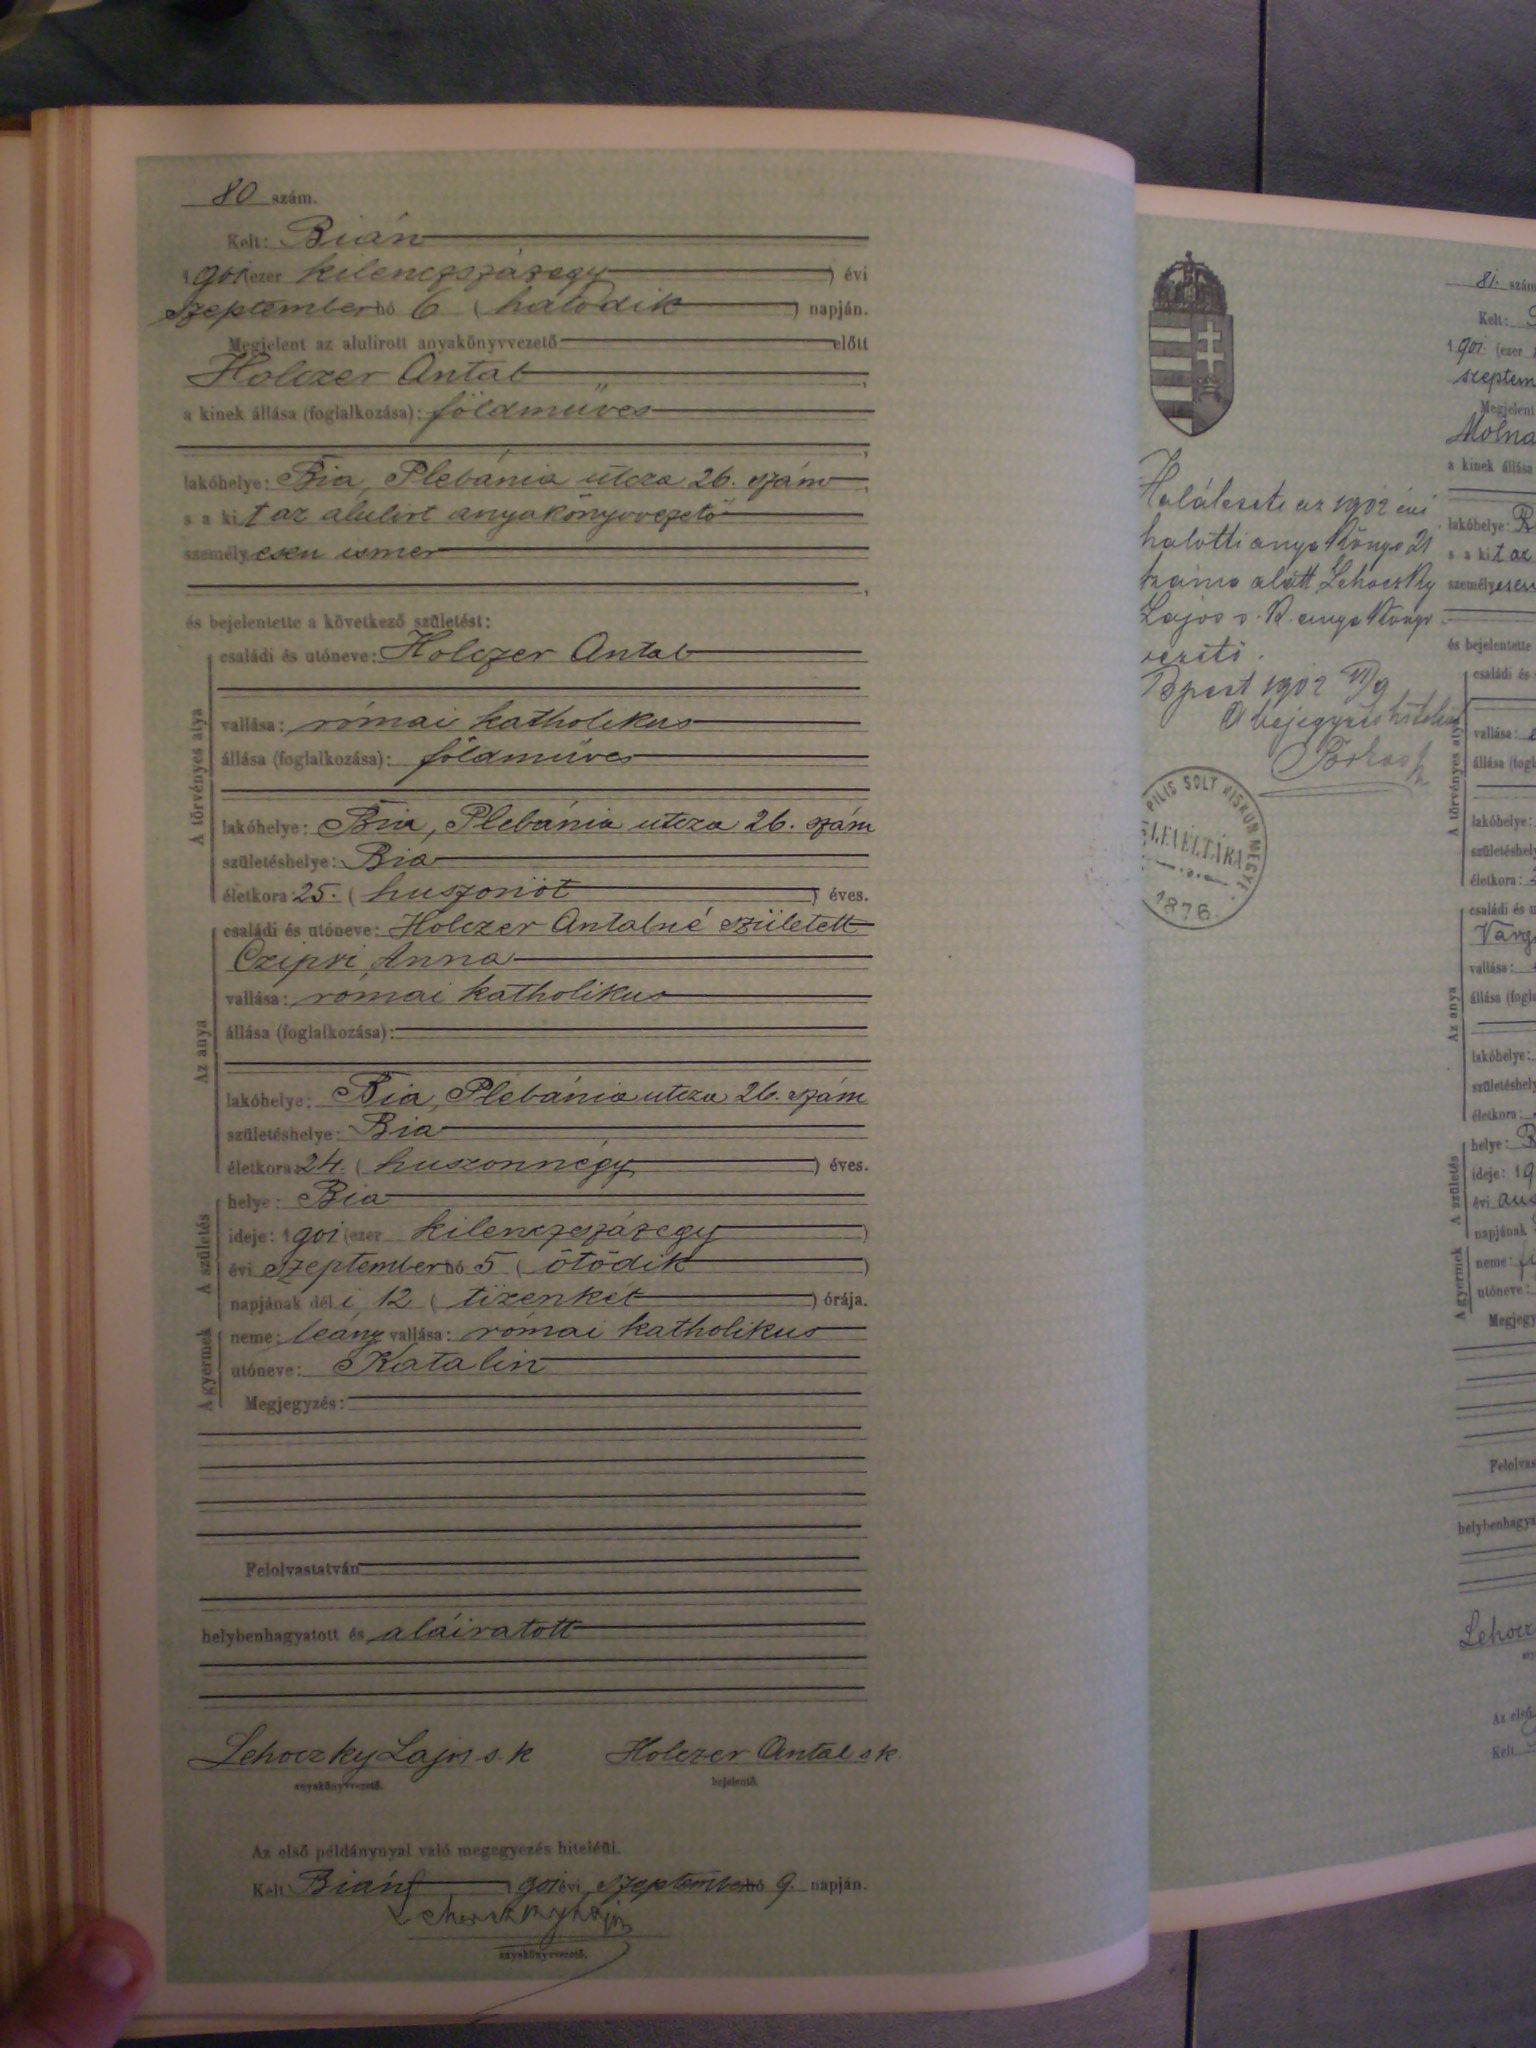 80 szám.
Kelt: Bián
1901 (ezer kilenczszázegy) évi
szeptember hó 6 (hatodik) napján.
Megjelent az alulirott anyakönyvvezető előtt
Holczer Antal,
a kinek állása (foglalkozása): földmüves
lakóhelye: Bia, Plebánia utcza 26. szám,
s a kit az alulirt anyakönyvvezető
személyesen ismer,
és bejelentette a következő születést:
A törvényes atya
családi és utóneve: Holczer Antal
vallása: római katholikus
állása (foglalkozása): földmüves
lakóhelye: Bia, Plebánia utcza 26. szám
születéshelye: Bia
életkora: 25. (huszonöt) éves.
Az anya
családi és utóneve: Holczer Antalné született
Czipri Anna
vallása: római katholikus
állása (foglalkozása):
lakóhelye: Bia, Plebánia utcza 26. szám
születéshelye: Bia
életkora: 24. (huszonnégy) éves.
A születés
helye: Bia
ideje: 1901 (ezer kilenczszázegy)
évi szeptember hó 5 (ötödik)
napjának déli 12 (tizenkét) órája.
A gyermek
neme: leány vallása: római katholikus
utóneve: Katalin
Megjegyzés:
Felolvastatván
helybenhagyatott és aláiratott
Lehoczky Lajos s. k Holczer Antal s k.
anyakönyvvezető. bejelentő.
Az első példánynyal való megegyezés hiteléül.
Kelt Bián 1901 évi szeptember hó 9. napján.
Lehoczky Lajos
anyakönyvvezető.
Haláleseti az 1902 évi
halotti anyakönyv 21
száma alatt Lehoczky
Lajos s. k. anyakönyv
vezető.
Bpest 1902 VI/9
A bejegyzés hiteléül
PILIS SOLT KISKUN MEGYE
LEVÉLTÁRA
1876.
81. szám
Kelt:
1901 (ezer
szeptem
Megjelent
Molna
a kinek állása
lakóhelye: B
s a kit az
személyesen
és bejelentette
A törvényes atya
családi és
vallása:
állása (fogl
lakóhelye:
születéshely
életkora:
Az anya
családi és u
Varg
vallása:
állása (fogl
lakóhelye:
születéshely
életkora:
A születés
helye: B
ideje: 19
évi aug
napjának
A gyermek
neme:
utóneve:
Megjegy
Felolvas
helybenhagya
Lehocz
Az első
Kelt